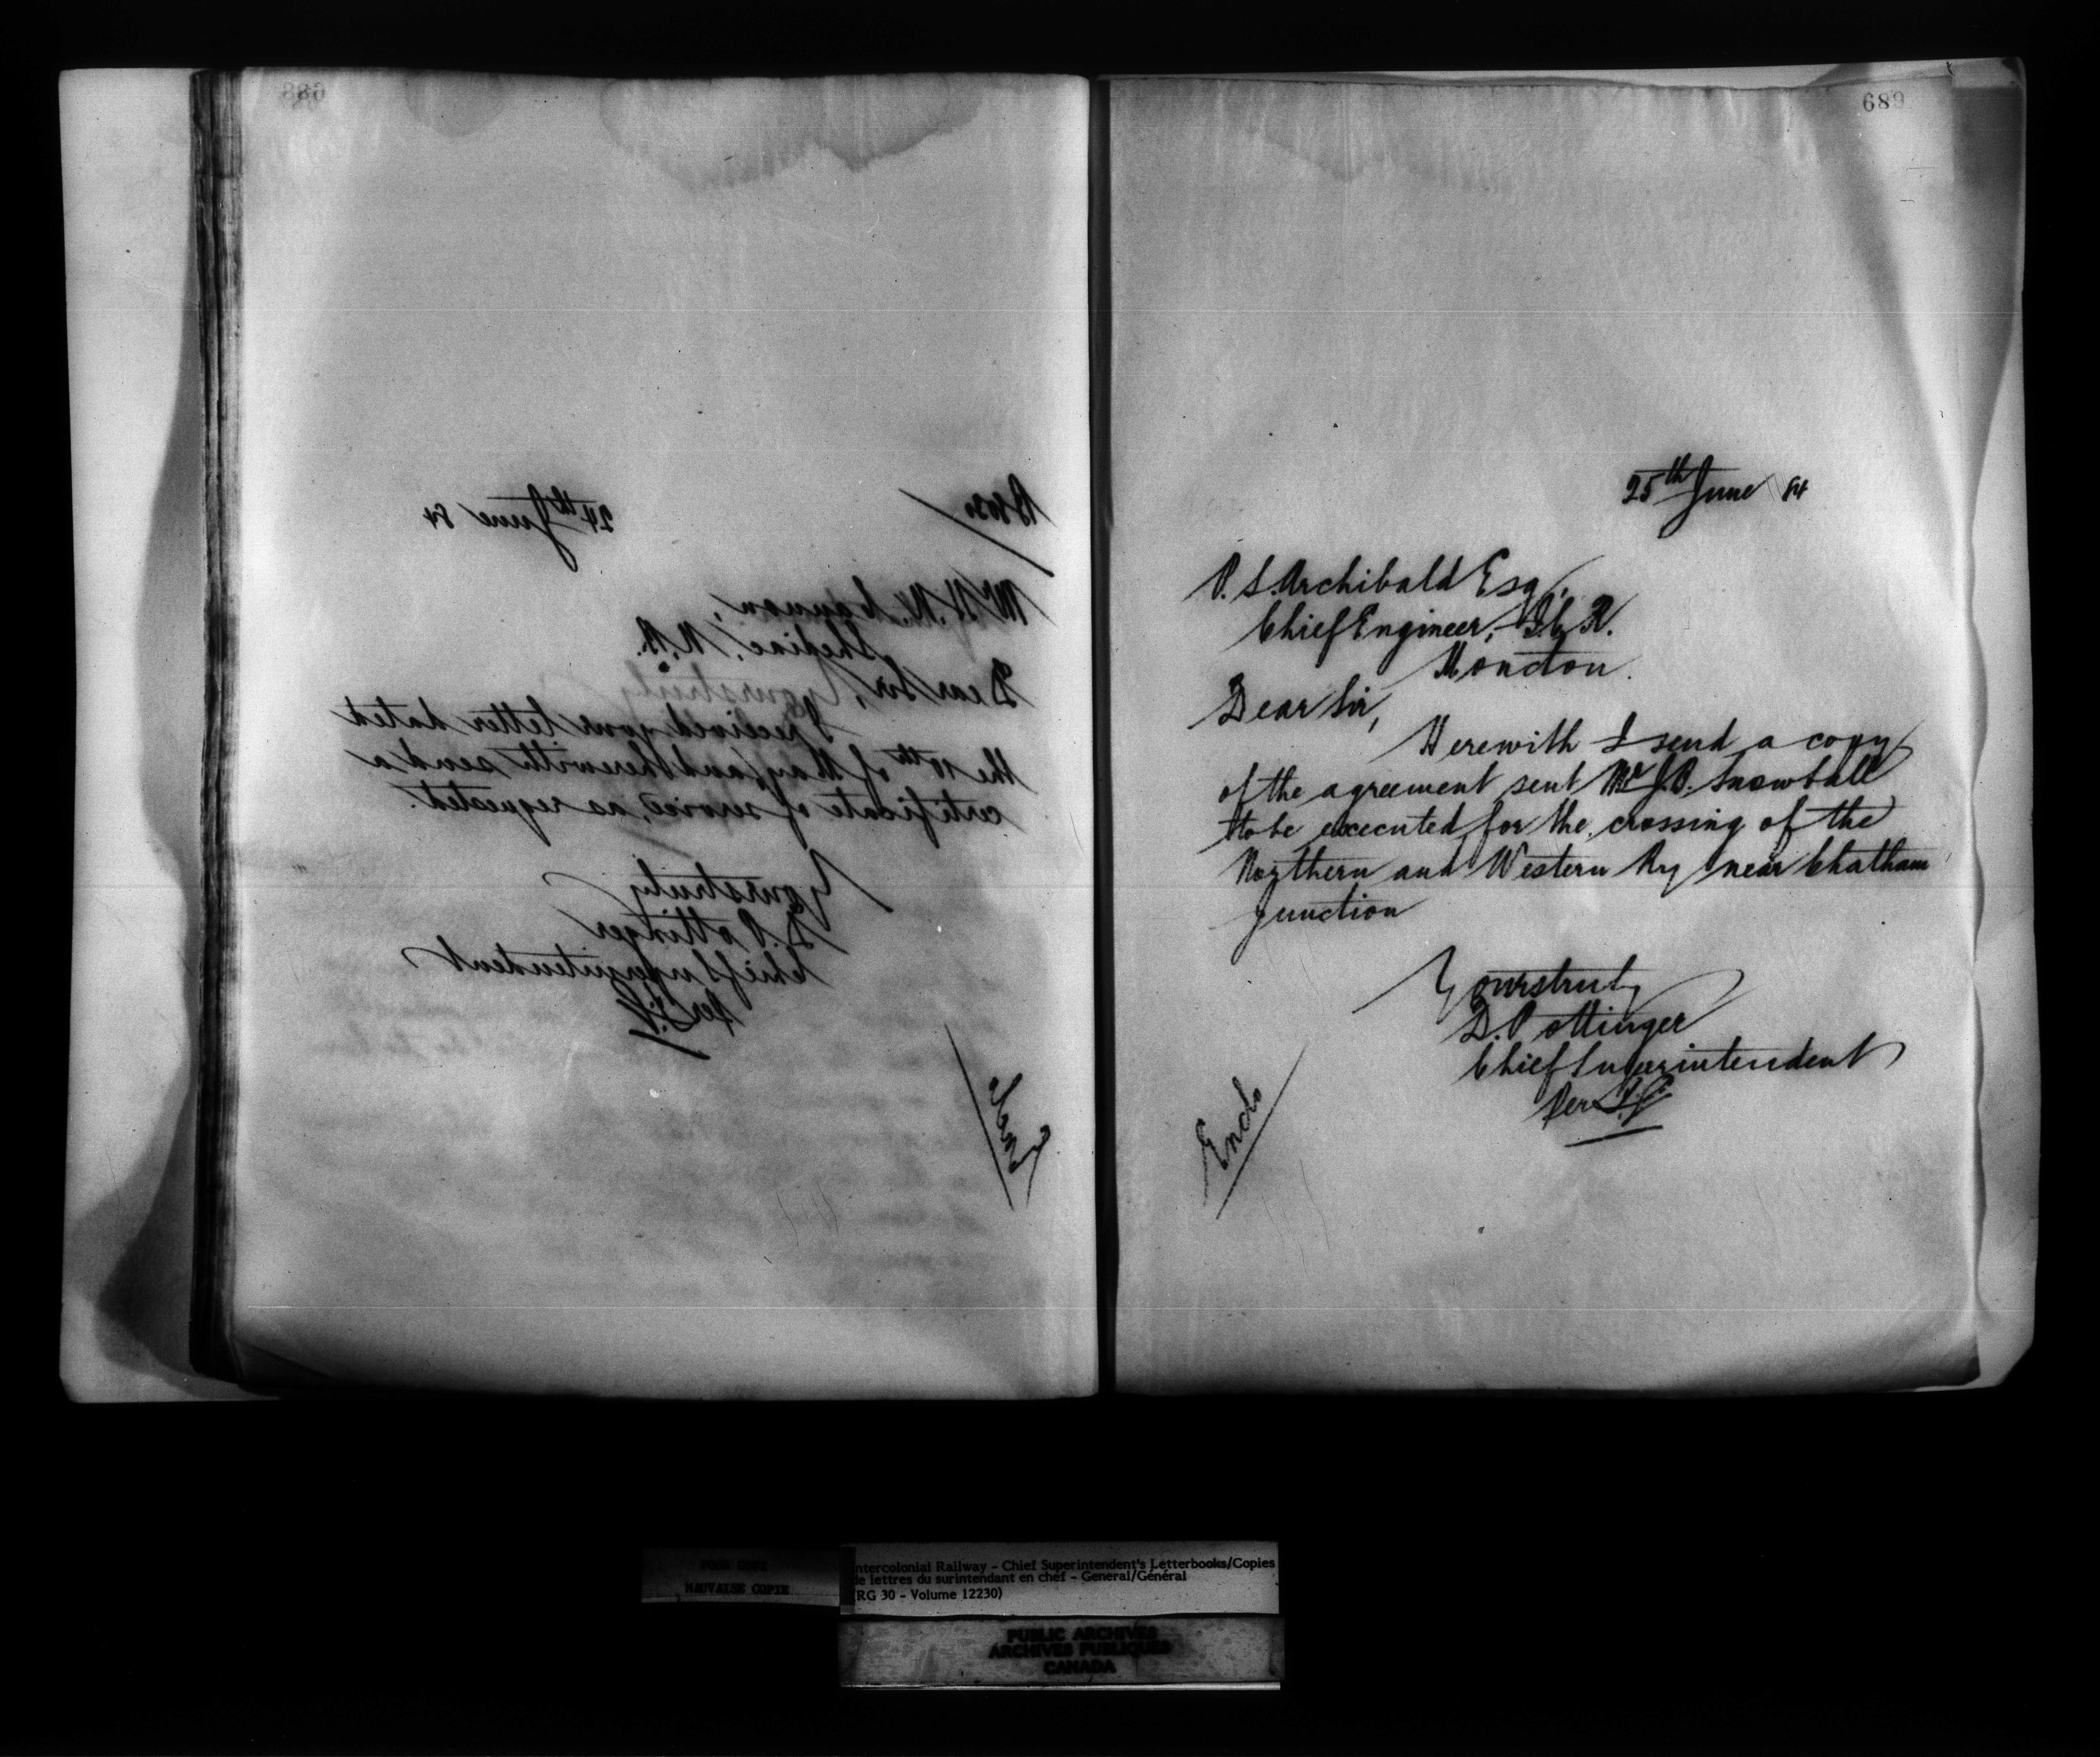 688
24th June 84
Mr H. N.
Shediac, N.B.
Dear Sir,
I received your letter dated
the 10th of May, and herewith send a
certificate of service, as requested.
Yours truly
D. Pottinger
Chief Superintendent
Per
Encl.
689
25th June 84
P. S. Archibald Esq,
Chief Engineer, I.C.R.
Moncton.
Dear Sir,
Herewith I send a copy
of the agreement sent Mr J.B. Snowball
to be executed for the crossing of the
Northern and Western Ry near Chatham
junction
Yours truly
D. Pottinger
Chief Superintendent
Per
Enclo
POOR COPY
MAUVAISE COPIE
ntercolonial Railway - Chief Superintendent's Letterbooks/Copies
de lettres du surintendant en chef - General/Général
(RG 30 - Volume 12230)
PUBLIC ARCHIVES
ARCHIVES PUBLIQUES
CANADA